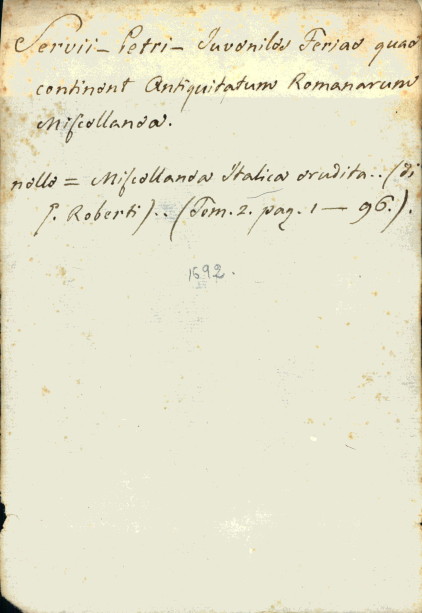 Servii - Petri - Juveniles Feriae quae
continent Antiquitatum Romanarum
Miscellanea.
nelle = Miscellanea Italica erudita.. (di
G. Roberti).. (Tom. 2. pag. 1 — 96.).
1692.